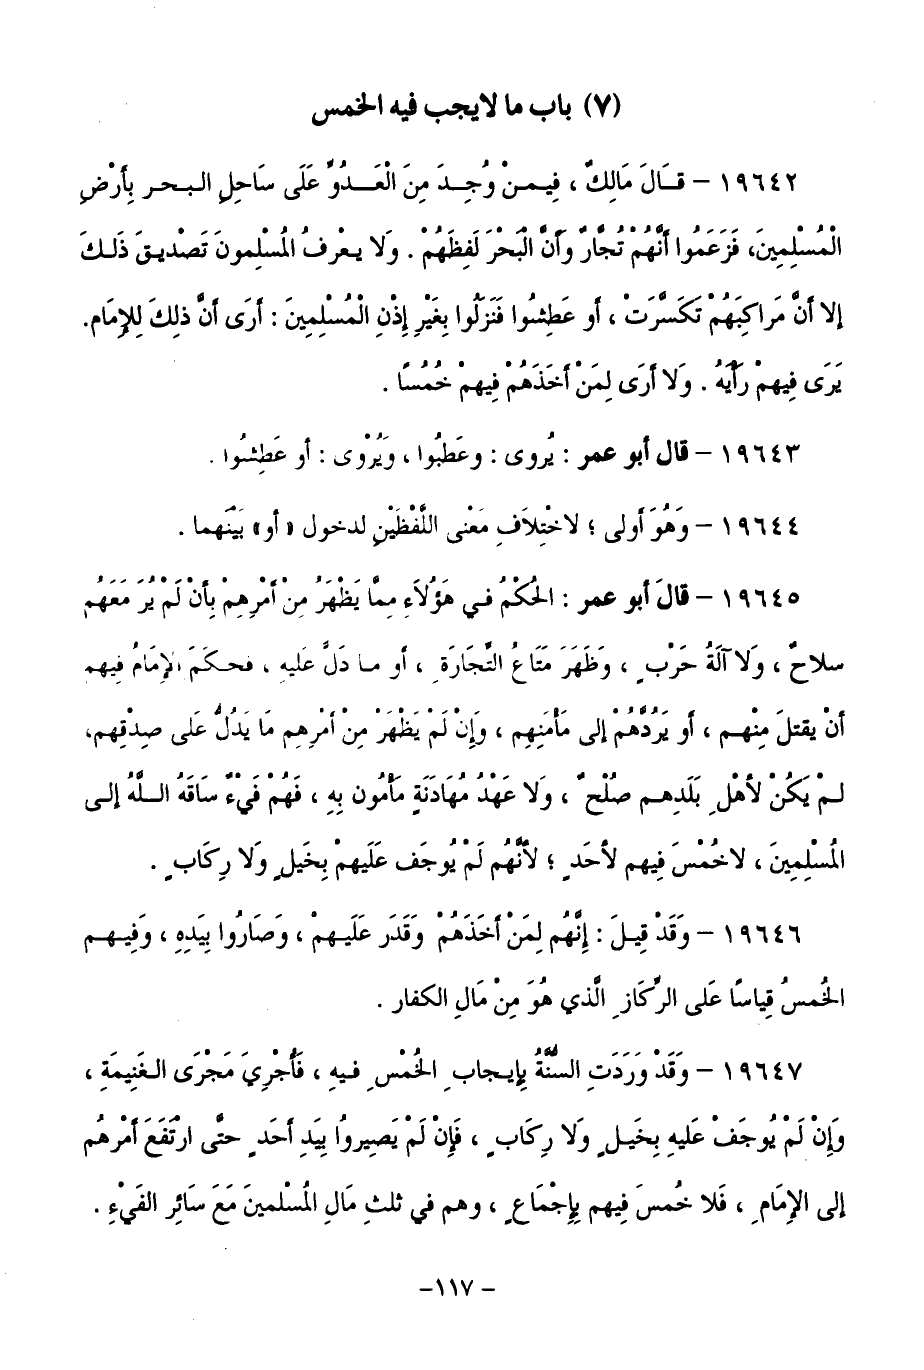 (٧) باب ما لايجب فيه الخمس
١٩٦٤٢ – قَالَ مَالِكٌ ، فِيمَنْ وُجِدَ مِنَ الْعَدُوِّ عَلَى سَاحِلِ البحر بِأَرْضِ
الْمُسْلِمِينَ، فَزَعَمُوا أَنَّهُمْ تُجَّارٌ وَأَنَّ الْبَحْرَ لَفِظَهُمْ . وَلا يعْرفُ الْمُسْلمونَ تَصْديقَ ذَلكَ
إلا أنَّ مَراكِبَهُمْ تَكَسَّرَتْ ، أو عَطِشُوا فَنَزَلُوا بِغَيْرِ إِذْنِ الْمُسْلِمِينَ : أَرَى أَنَّ ذلِكَ لِلإِمَام.
يَرَى فِيهِمْ رَأْيَهُ . وَلا أَرَى لِمَنْ أَخَذَهُمْ فِيهِمْ خُمُسًا .
١٩٦٤٣ – قال أبو عمر : يُروى : وعَطَبُوا ، وَيُرْوى : أو عَطِشُوا .
١٩٦٤٤ – وَهُوَ أولى ؛ لاخْتِلاَفِ مَعْنى اللَّفْظَيْنِ لدخول « أو» بَيْنَهما .
١٩٦٤٥ – قالَ أبو عمر : الحُكْمُ في هَؤُلاَءِ مِمَّا يَظْهَرُ مِنْ أمْرِهِمْ بِأَنْ لَمْ يُرَ مَعَهُم
سلاحٌ ، وَلا آلَةُ حَرْبٍ ، وَظَهَرَ مَتَاعُ التِّجَارَةِ ، أو ما دَلَّ عَليهِ ، فحكَمَ الإِمَامُ فِيهم
أنْ يقتلَ مِنْهم ، أو يَرُدَّهُمْ إلى مَأْمَنِهِم ، وَإِنْ لَمْ يَظْهَرْ مِنْ أمْرِهِم مَا يَدُلُّ عَلى صِدْقِهم،
لَمْ يَكُنْ لأَهْلِ بَلَدِهم صُلْحٌ ، وَلا عَهْدُ مُهَادَنَةٍ مَأمُون بِهِ ، فَهُمْ فَيْءٌ سَاقَهُ اللَّهُ إلى
المُسْلِمِينَ ، لاخُمْسَ فِيهم لأحَدٍ ؛ لأنَّهُم لَمْ يُوجَف عَلَيهمْ بِخَيلٍ وَلا رِكَابٍ .
١٩٦٤٦ – وَقَدْ قِيلَ : إِنَّهُم لِمَنْ أَخَذَهُمْ وَقَدَر عَلَيهمْ ، وَصَارُوا بِيَدِهِ ، وَفِيهم
الخُمسُ قِياسًا عَلى الرِّكَازِ الَّذي هُوَ مِنْ مَالِ الكفار .
١٩٦٤٧ – وَقَدْ وَرَدَتِ السنَّةُ بِإيجابِ الخُمْسِ فيهِ ، فَأُجْرِيَ مَجْرَى الغَنِيمَةِ ،
وَإِنْ لَمْ يُوجَفْ عَليهِ بِخَيلٍ وَلا رِكَابٍ ، فَإِنْ لَمْ يَصيروُا بِيَدِ أحَدٍ حتَّى ارْتَفَعَ أمْرهُم
إلى الإِمَامِ ، فَلا خُمسَ فِيهم بِإِجْمَاعٍ ، وهم في ثلثِ مَالِ المُسْلمينَ مَعَ سَائِر الفَيْءِ .
– ١١٧–